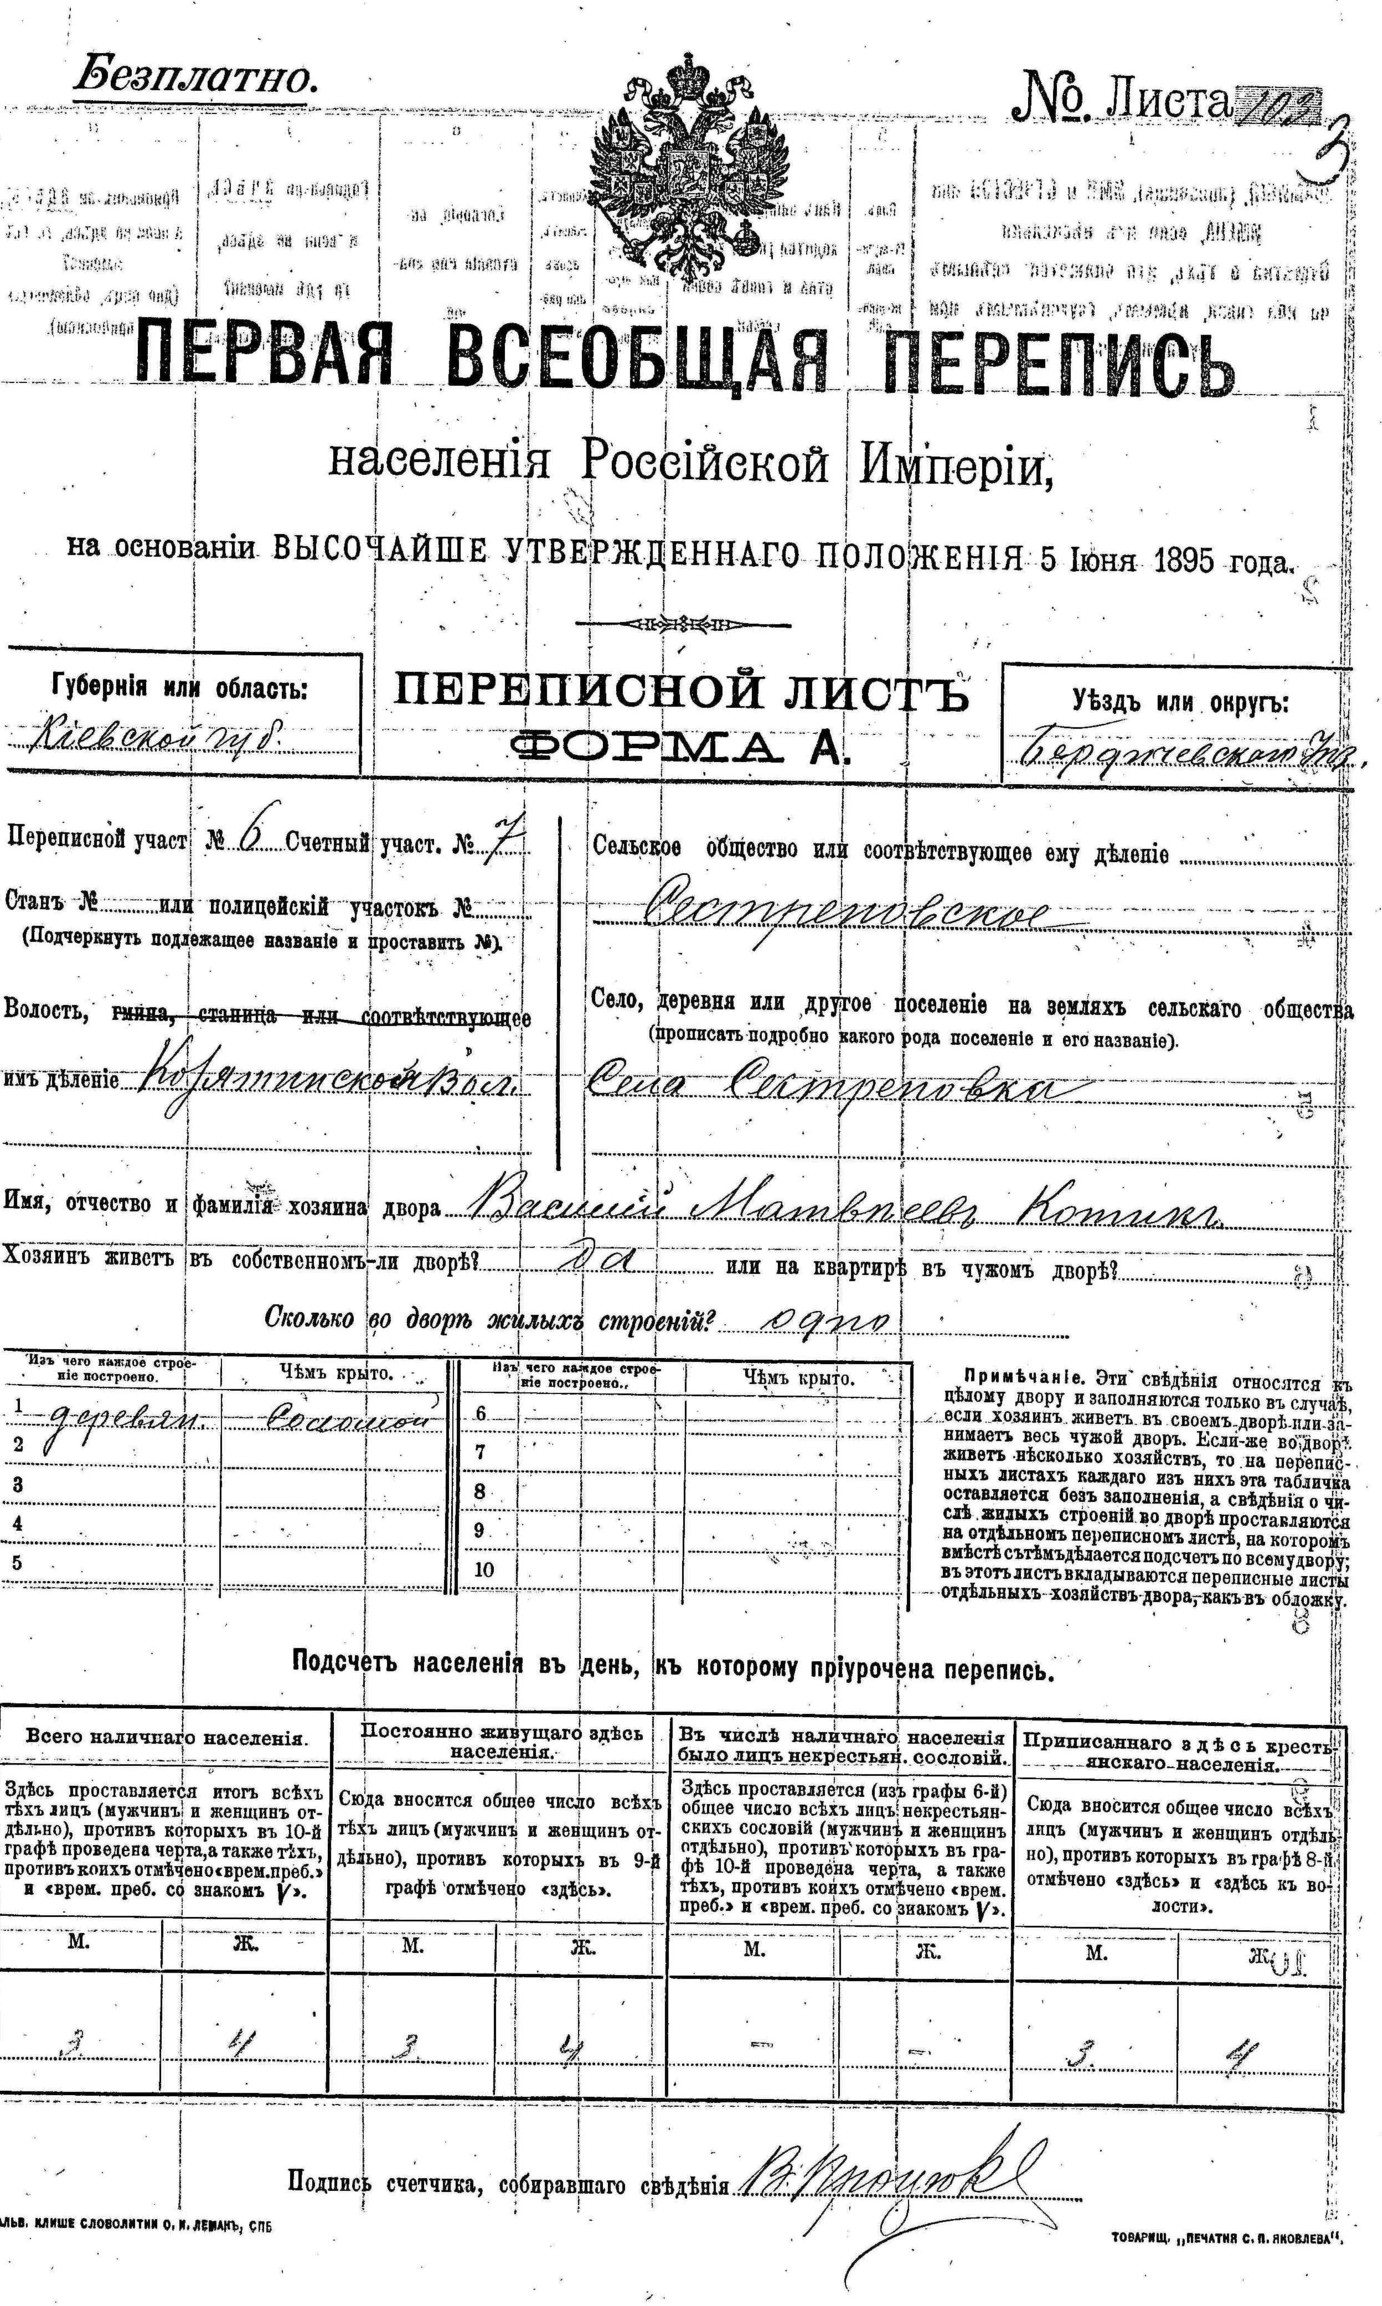 Безплатно.
№. Листа 103
3
ПЕРВАЯ ВСЕОБЩАЯ ПЕРЕПИСЬ
населенія Россійской Имперіи,
на основаніи ВЫСОЧАЙШЕ УТВЕРЖДЕННАГО ПОЛОЖЕНІЯ 5 Іюня 1895 года.
Губернія или область:
Кіевской губ.
ПЕРЕПИСНОЙ ЛИСТЪ
ФОРМА А.
Уѣздъ или округъ:
Бердичевскаго
Переписной участ № 6 Счетный участ. № 7
Станъ № или полицейскій участокъ №
(Подчеркнуть подлежащее названіе и проставить №).
Волость, гмина, станица или соотвѣтствующее
имъ дѣленіе Козятинской Вол.
Сельское общество или соотвѣтствующее ему дѣленіе
Сестреновское
Село, деревня или другое поселеніе на земляхъ сельскаго общества
(прописать подробно какого рода поселеніе и его названіе).
Села Сестреновка
Имя, отчество и фамилія хозяина двора Василій Матвѣевъ Котикъ
Хозяинъ живетъ въ собственномъ-ли дворѣ? да или на квартирѣ въ чужомъ дворѣ?
Сколько во дворѣ жилыхъ строеній? одно
Изъ чего каждое строе-
ніе построено.
Чѣмъ крыто.
Изъ чего каждое строе-
ніе построено.
Чѣмъ крыто.
1 деревян. Соломой 6
2 7
3 8
4 9
5 10
Примѣчаніе. Эти свѣдѣнія относятся къ
цѣлому двору и заполняются только въ случаѣ,
если хозяинъ живетъ въ своемъ дворѣ или за-
нимаетъ весь чужой дворъ. Если-же во дворѣ
живетъ нѣсколько хозяйствъ, то на перепис-
ныхъ листахъ каждаго изъ нихъ эта табличка
оставляется безъ заполненія, а свѣдѣнія о чи-
слѣ жилыхъ строеній во дворѣ проставляются
на отдѣльномъ переписномъ листѣ, на которомъ
вмѣстѣ съ тѣмъ дѣлается подсчетъ по всему двору;
въ этотъ листъ вкладываются переписные листы
отдѣльныхъ хозяйствъ двора, какъ въ обложку.
Подсчетъ населенія въ день, къ которому пріурочена перепись.
Всего наличнаго населенія.
Здѣсь проставляется итогъ всѣхъ
тѣхъ лицъ (мужчинъ и женщинъ от-
дѣльно), противъ которыхъ въ 10-й
графѣ проведена черта, а также тѣхъ,
противъ коихъ отмѣчено «врем. преб.»
и «врем. преб. со знакомъ V».
Постоянно живущаго здѣсь
населенія.
Сюда вносится общее число всѣхъ
тѣхъ лицъ (мужчинъ и женщинъ от-
дѣльно), противъ которыхъ въ 9-й
графѣ отмѣчено «здѣсь».
Въ числѣ наличнаго населенія
было лицъ некрестьян. сословій.
Здѣсь проставляется (изъ графы 6-й)
общее число всѣхъ лицъ некрестьян-
скихъ сословій (мужчинъ и женщинъ
отдѣльно), противъ которыхъ въ гра-
фѣ 10-й проведена черта, а также
тѣхъ, противъ коихъ отмѣчено «врем.
преб.» и «врем. преб. со знакомъ V».
Приписаннаго здѣсь кресть-
янскаго населенія.
Сюда вносится общее число всѣхъ
лицъ (мужчинъ и женщинъ отдѣль-
но), противъ которыхъ въ графѣ 8-й
отмѣчено «здѣсь» и «здѣсь къ во-
лости».
М. Ж. М. Ж. М. Ж. М. Ж.
3. 4 3. 4 — — 3. 4
Подпись счетчика, собиравшаго свѣдѣнія
АЛЬВ. КЛИШЕ СЛОВОЛИТНИ О. И. ЛЕМАНЪ, СПБ
ТОВАРИЩ. „ПЕЧАТНЯ С. П. ЯКОВЛЕВА".